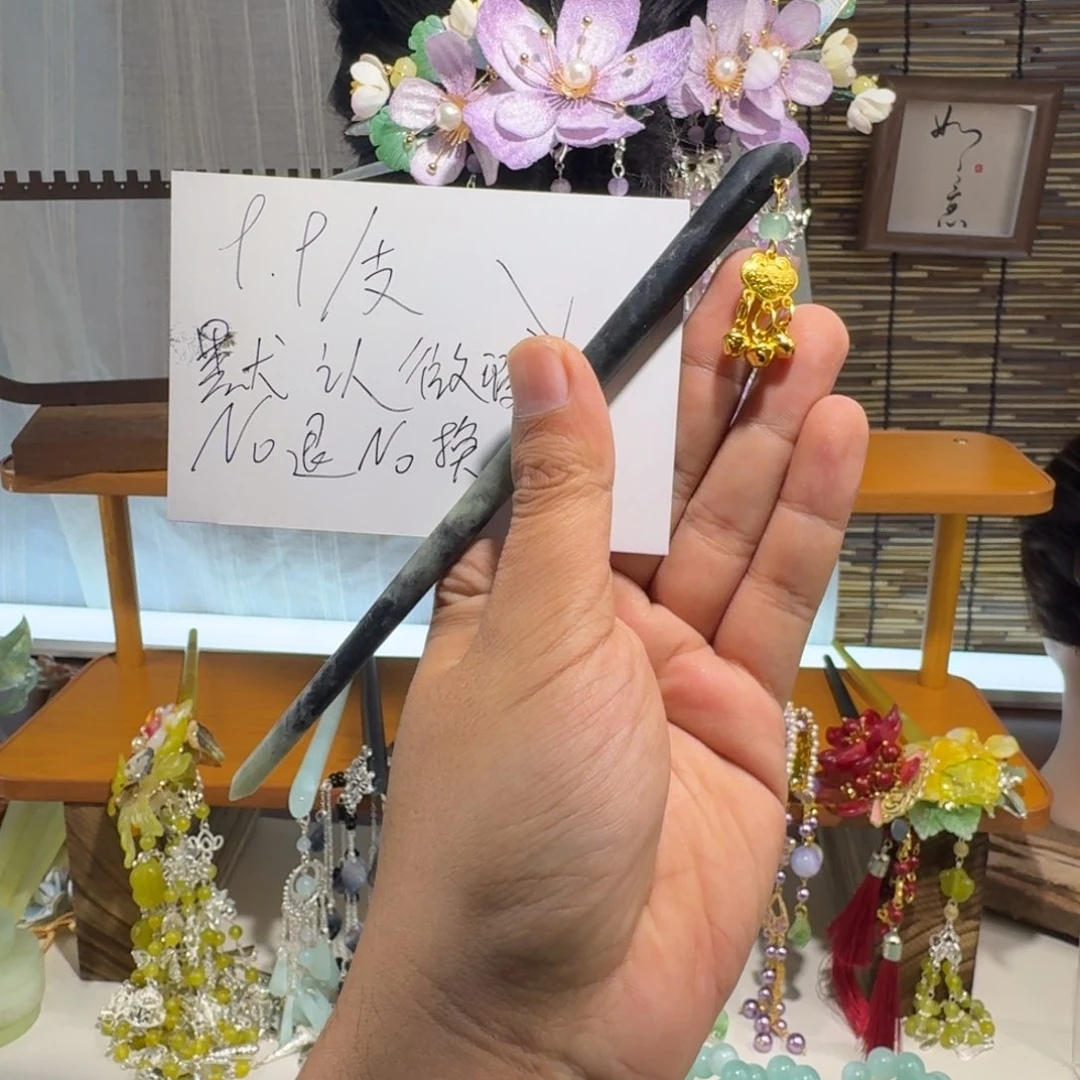 9.9/支
默认微
No退No换
如意